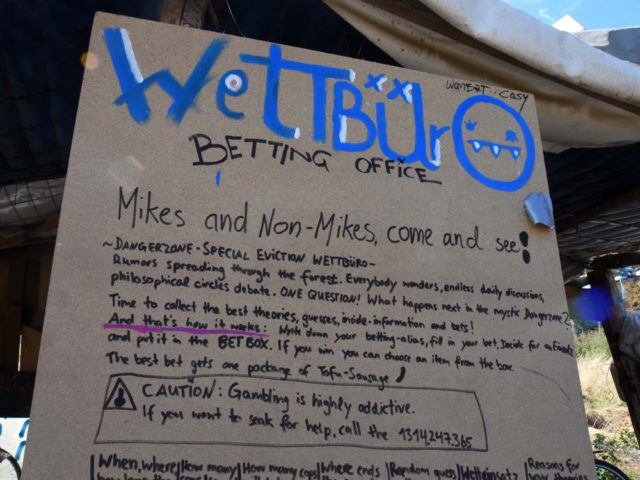 WettBüro
WOMBAT.. COSY
BETTING OFFICE
Mikes and Non-Mikes, come and see!
~DANGERZONE-SPECIAL EVICTION WETTBÜRO~
Rumors spreading through the forest. Everybody wonders, endless daily discussions,
philosophical circles debate. ONE QUESTION! What happens next in the mystic Dangerzone?
Time to collect the best theories, guesses, inside-information and bets!
And that's how it works: Write down your betting-alias, fill in your bet, Decide for an
and put it in the BET BOX. If you win you can choose an item from the box.
The best bet gets one package of Tofu-Sausage!
CAUTION: Gambling is highly addictive.
If you want to seak for help, call the 1314.247.365
When, where How many How many cops Where ends Random guess Wetteinsatz Reasons for